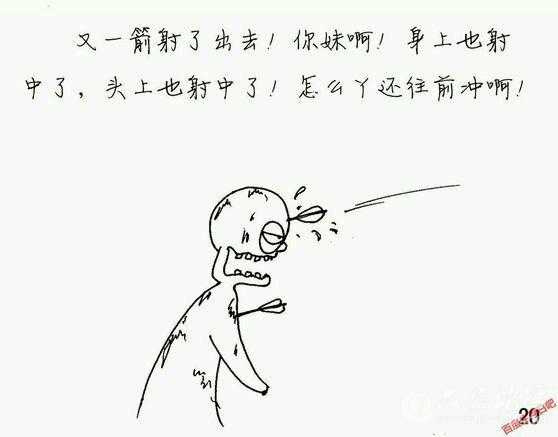 又一箭射了出去！你妹啊！身上也射
中了，头上也射中了！怎么丫还往前冲啊！
20